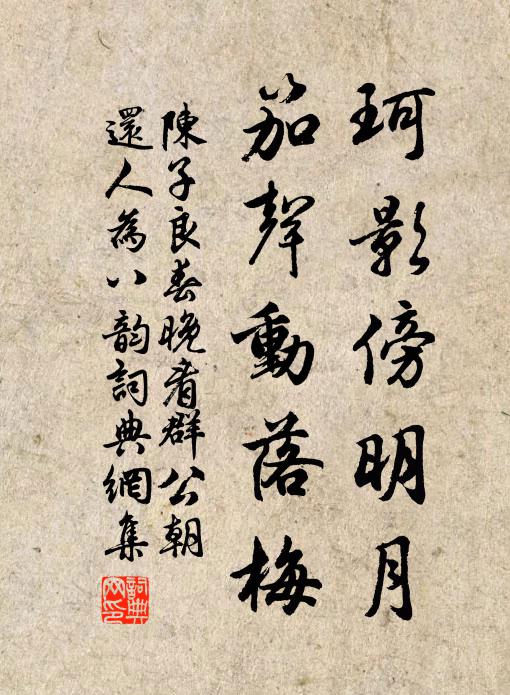 珂影傍明月
笳聲動落梅
陳子良春晚看群公朝
還人為八韵詞典網集